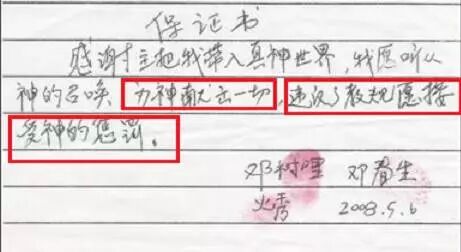 保证书
感谢主把我带入真神世界，我愿听从
神的召唤 为神献出一切，违反了教规愿接
受神的惩罚。
邓树哩 邓春生
火秀 2008.5.6